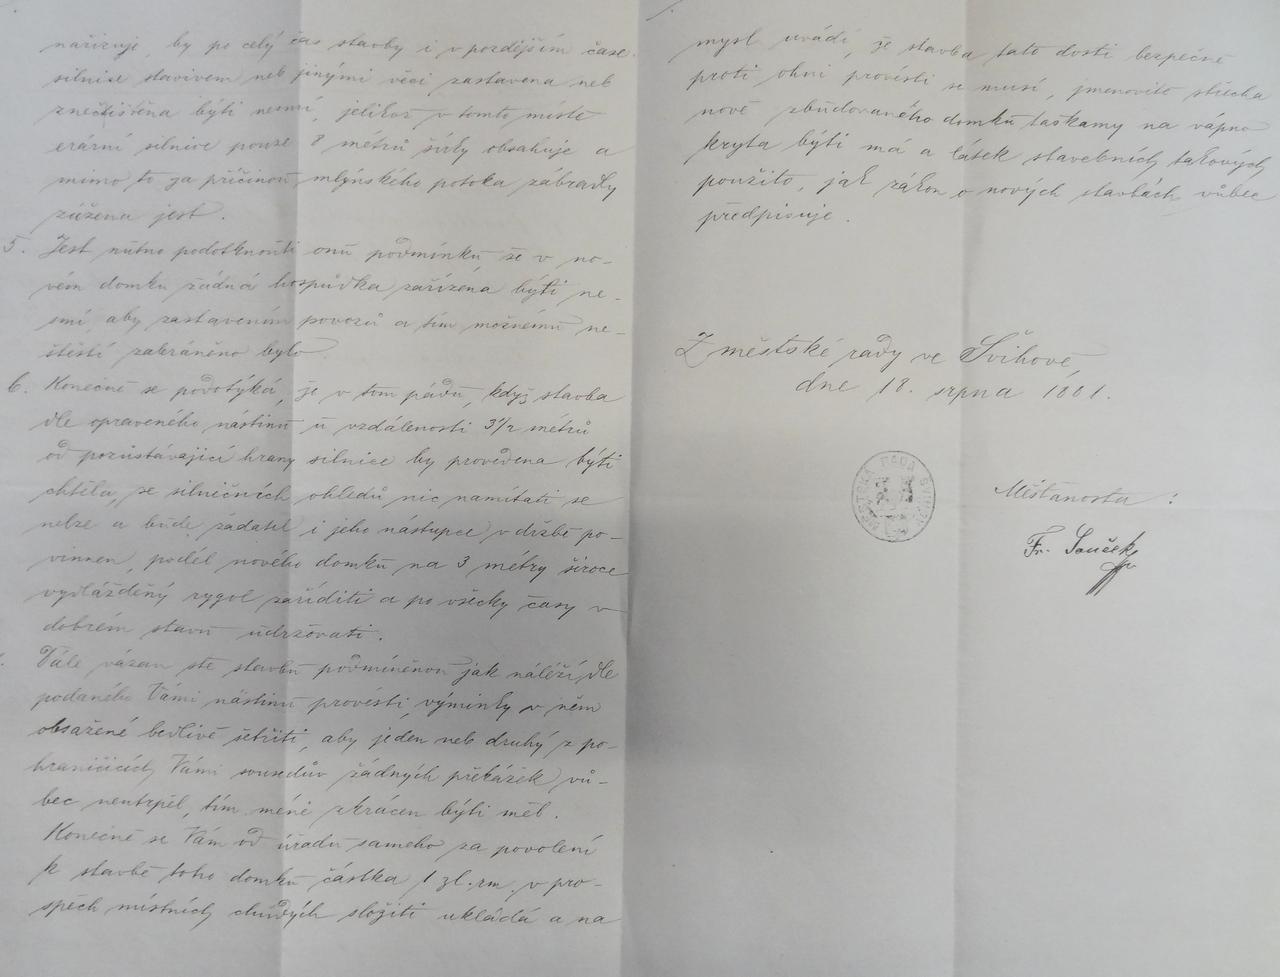 nařizuje, by po celý čas stavby i v pozdějším čase
silnice stavivem neb jinými věci zastavena neb
znečištěna býti nesmí, jelikož v tomto místě
erární silnice pouze 8 métrů šířky obsahuje a
mimo to za příčinou mlýnského potoka zábradly
zúžena jest.
5. Jest nutno podotknouti onu podmínku že v no-
vém domku žádná hospůdka zařízena býti ne-
smí, aby zastavením povozů a tím možnému ne-
štěstí zabráněno bylo.
6. Konečně se podotýká, že v tom pádu, když stavba
dle opraveného nástinu u vzdálenosti 3 1/2 métrů
od pozůstávající hrany silnice by provedena býti
chtěla, ze silničních ohledů nic namítati se
nelze a bude žadatel i jeho nástupce v držbě po-
vinnen, podél nového domku na 3 métry široce
vydlážděný rygol zaříditi a po všecky časy v
dobrém stavu udržovati.
Dále vázan jste stavbu podmíněnou jak náleží dle
podaného Vámi nástinu provésti, výminky v něm
obsažené bedlivě šetřiti, aby jeden neb druhý z po-
hraničících Vámi sousedův žádných překážek vů-
bec neutrpěl, tím méně zkrácen býti měl.
Konečně se Vám od úřadu samého za povolení
k stavbě toho domku částka 1 zl. rm. v pro-
spěch místních chudých složiti ukládá a na
mysl uvádí, že stavba tato dosti bezpečně
proti ohni provésti se musí, jmenovitě střecha
nově zbudovaného domku taškamy na vápno
kryta býti má a látek stavebních takových
použito, jak zákon o nových stavbách vůbec
předpisuje.
Z městské rady ve Švihově,
dne 18. srpna 1881.
MĚSTSKÁ RADA ŠVIHOV
Měšťanosta:
Fr. Souček